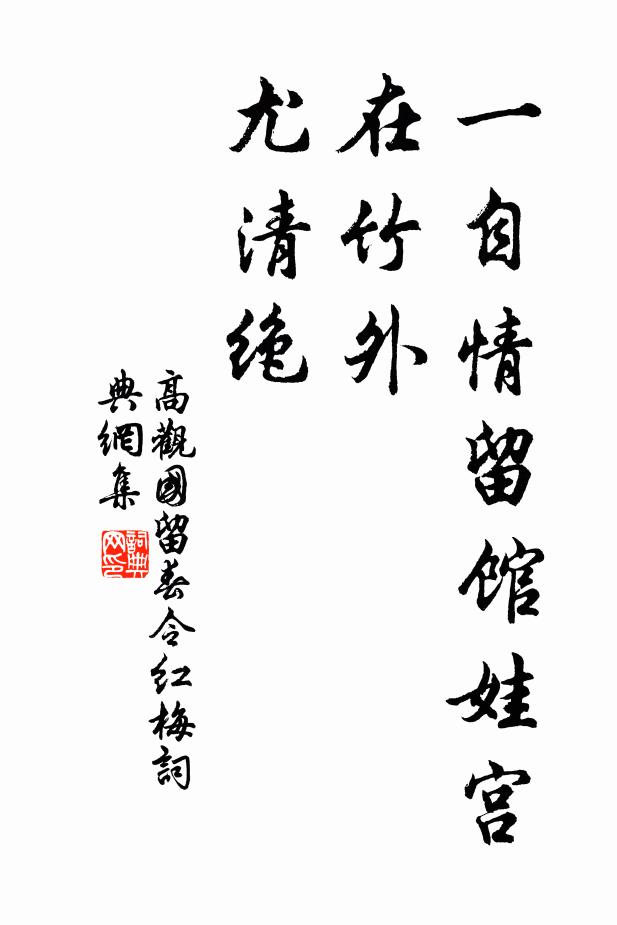 一自情留馆娃宫
在竹外
尤清绝
高觀國留春令红梅詞
典網集
詞典
网印